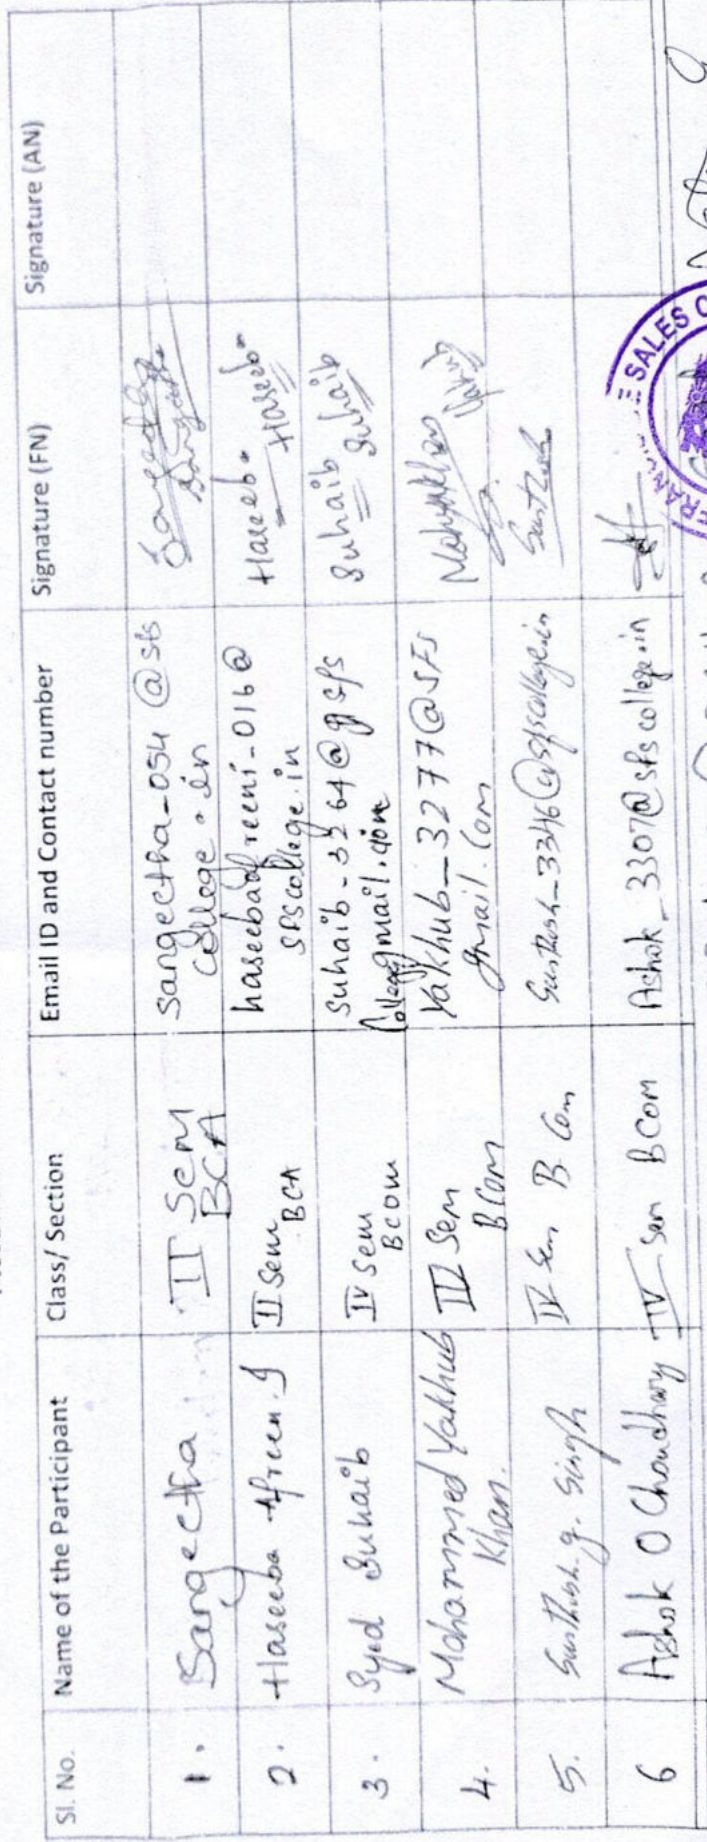 Sl. No. Name of the Participant Class/ Section Email ID and Contact number Signature (FN) Signature (AN)
1. Sangeetha II Sem BCA sangeetha-054@sfs college.in Sangeetha Sangeetha
2. Haseeba Afreen.J II Sem BCA haseebaafreeni-016@ sfscollege.in Haseeba Haseeba
3. Syed Suhaib IV Sem BCOM Suhaib-3264@ sfs College gmail.com Suhaib Suhaib
4. Mohammed Yakhub Khan. IV Sem BCom Yakhub_3277@SFS gmail.com
5. Santhosh.g. Singh IV Sem B.Com Santhosh_3346@sfscollege.in Santhosh
6 Ashok O Choudhary IV Sem BCom Ashok_3307@sfscollege.in
SALES